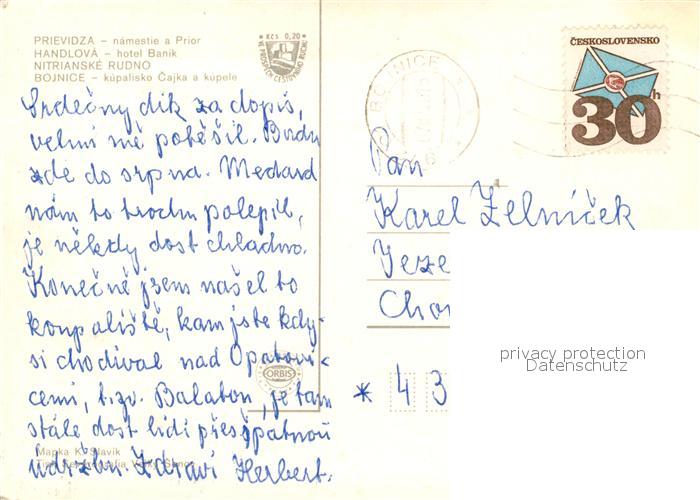 PRIEVIDZA – námestie a Prior
HANDLOVÁ – hotel Baník
NITRIANSKÉ RUDNO
BOJNICE – kúpalisko Čajka a kúpele
KČS 0,20
VE PROSPĚCH CESTOVNÍHO RUCHU
BOJNICE
ČESKOSLOVENSKO
30h
Srdečný dík za dopis,
velmi mě potěšil. Budu
zde do srpna. Medard
nám to trochu polepil,
je někdy dost chladno.
Konečně jsem našel to
koupaliště, kam jste kdy-
si chodíval nad Opatovi-
cemi, tzv. Balaton, je tam
stále dost lidí přes špatnou
údržbu. Zdraví Herbert.
Pan
Karel Zelníček
Jeze
Chor
* 4 3
ORBIS
Mapka K. Slavík
privacy protection
Datenschutz